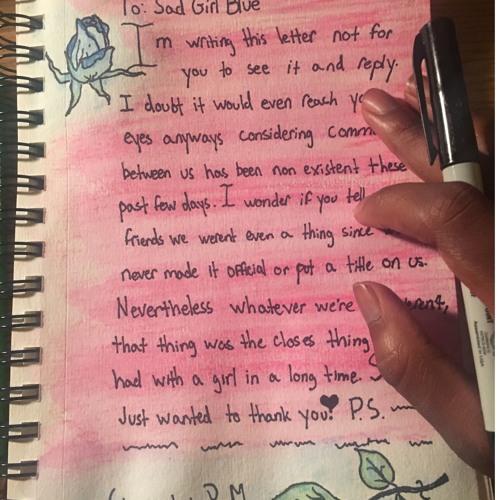 To: Sad Girl Blue
I'm writing this letter not for
you to see it and reply.
I doubt it would even reach yo
eyes anyways considering comm
between us has been non existent these
past few days. I wonder if you tell
friends we werent even a thing since
never made it official or put a title on us.
Nevertheless whatever we're
that thing was the closes thing
had with a girl in a long time. S
Just wanted to thank you! P.S.